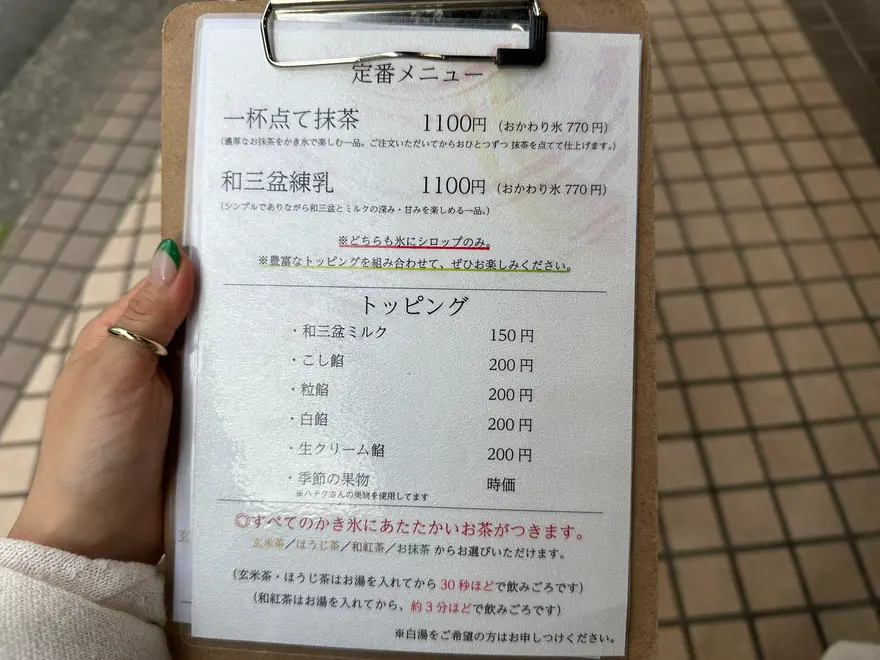 定番メニュー
一杯点て抹茶 1100円 (おかわり氷 770 円)
(濃厚なお抹茶をかき氷で楽しむ一品。ご注文いただいてからおひとつずつ 抹茶を点てて仕上げます。)
和三盆練乳 1100円 (おかわり氷 770 円)
(シンプルでありながら和三盆とミルクの深み・甘みを楽しめる一品。)
※どちらも氷にシロップのみ。
※豊富なトッピングを組み合わせて、ぜひお楽しみください。
トッピング
・和三盆ミルク 150 円
・こし餡 200 円
・粒餡 200 円
・白餡 200 円
・生クリーム餡 200 円
・季節の果物 時価
※ハナクさんの果物を使用してます
◎すべてのかき氷にあたたかいお茶がつきます。
玄米茶／ほうじ茶／和紅茶／お抹茶 からお選びいただけます。
(玄米茶・ほうじ茶はお湯を入れてから 30 秒ほどで飲みごろです)
(和紅茶はお湯を入れてから、約 3 分ほどで飲みごろです)
※白湯をご希望の方はお申しつけください。